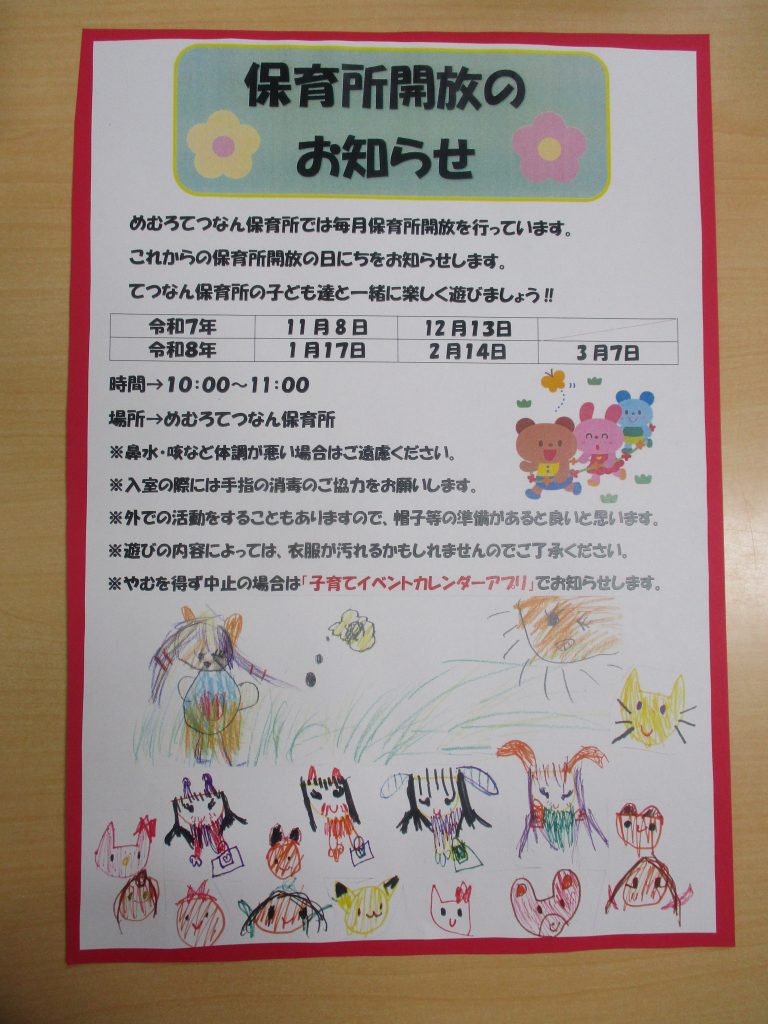 保育所開放の
お知らせ
めむろてつなん保育所では毎月保育所開放を行っています。
これからの保育所開放の日にちをお知らせします。
てつなん保育所の子ども達と一緒に楽しく遊びましょう!!
令和7年 11月8日 12月13日
令和8年 1月17日 2月14日 3月7日
時間→10:00～11:00
場所→めむろてつなん保育所
※鼻水・咳など体調が悪い場合はご遠慮ください。
※入室の際には手指の消毒のご協力をお願いします。
※外での活動をすることもありますので、帽子等の準備があると良いと思います。
※遊びの内容によっては、衣服が汚れるかもしれませんのでご了承ください。
※やむを得ず中止の場合は「子育てイベントカレンダーアプリ」でお知らせします。